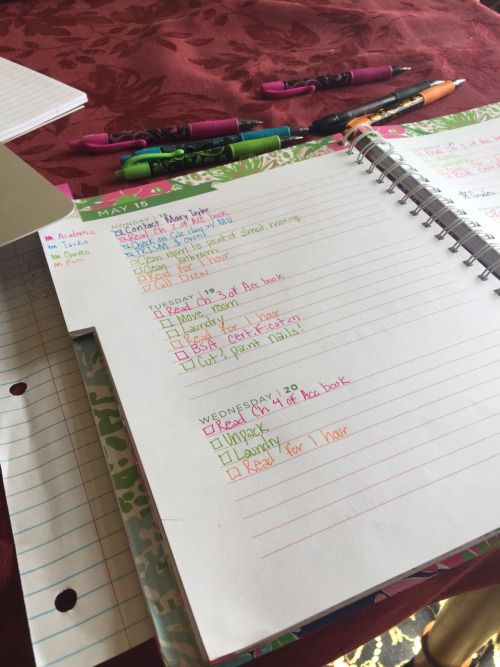 MAY 15
MONDAY 18
Contact Mary Taylor
Read Ch 2 of Acc book
Check on
Clean room to point of almost moving
Clean bathroom
Read for 1 hour
Call
TUESDAY | 19
Read Ch 3 of Acc book
Move room
Laundry
Read for 1 hour
BSA Certification
Cut & paint nails!
WEDNESDAY | 20
Read Ch 4 of Acc book
Unpack
Laundry
Read for 1 hour
Academic
Tasks
Chores
Fun